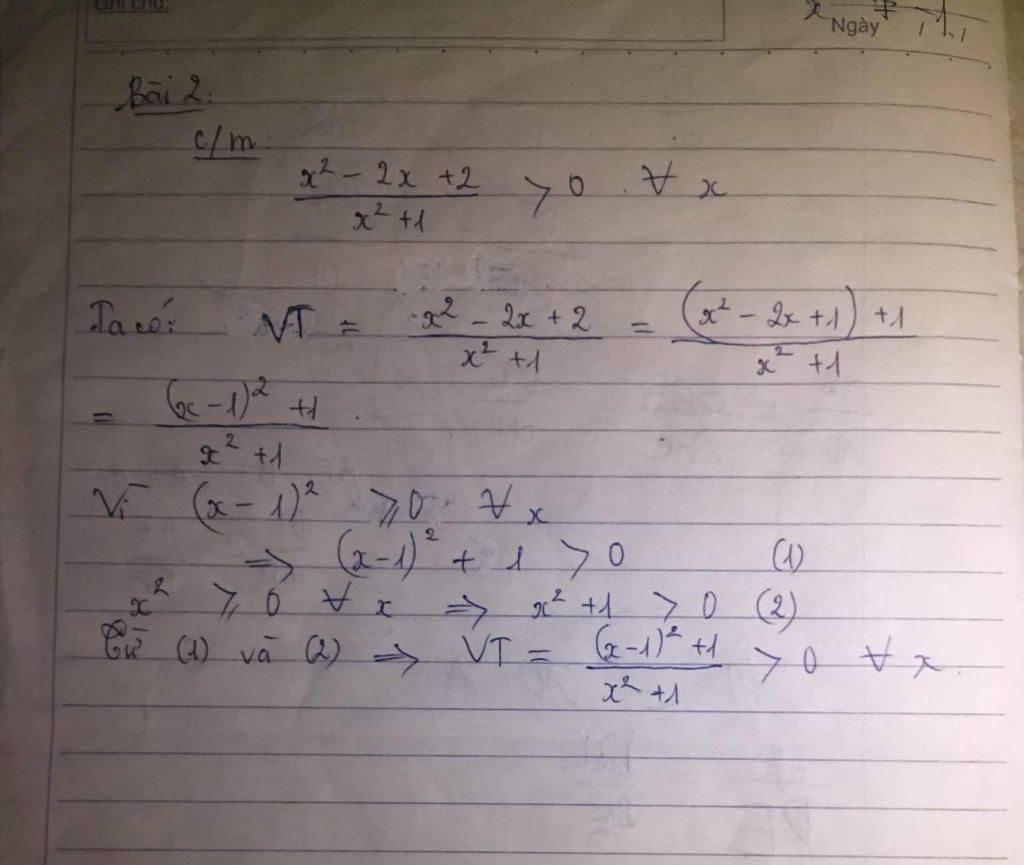 Ghi chú:
Ngày
Bài 2:
c/m:
x² - 2x + 2 / x² + 1 > 0 ∀ x
Ta có: VT = x² - 2x + 2 / x² + 1 = (x² - 2x + 1) + 1 / x² + 1
= (x - 1)² + 1 / x² + 1
Vì (x - 1)² ⩾ 0 ∀ x
⇒ (x - 1)² + 1 > 0 (1)
x² ⩾ 0 ∀ x ⇒ x² + 1 > 0 (2)
Từ (1) và (2) ⇒ VT = (x - 1)² + 1 / x² + 1 > 0 ∀ x